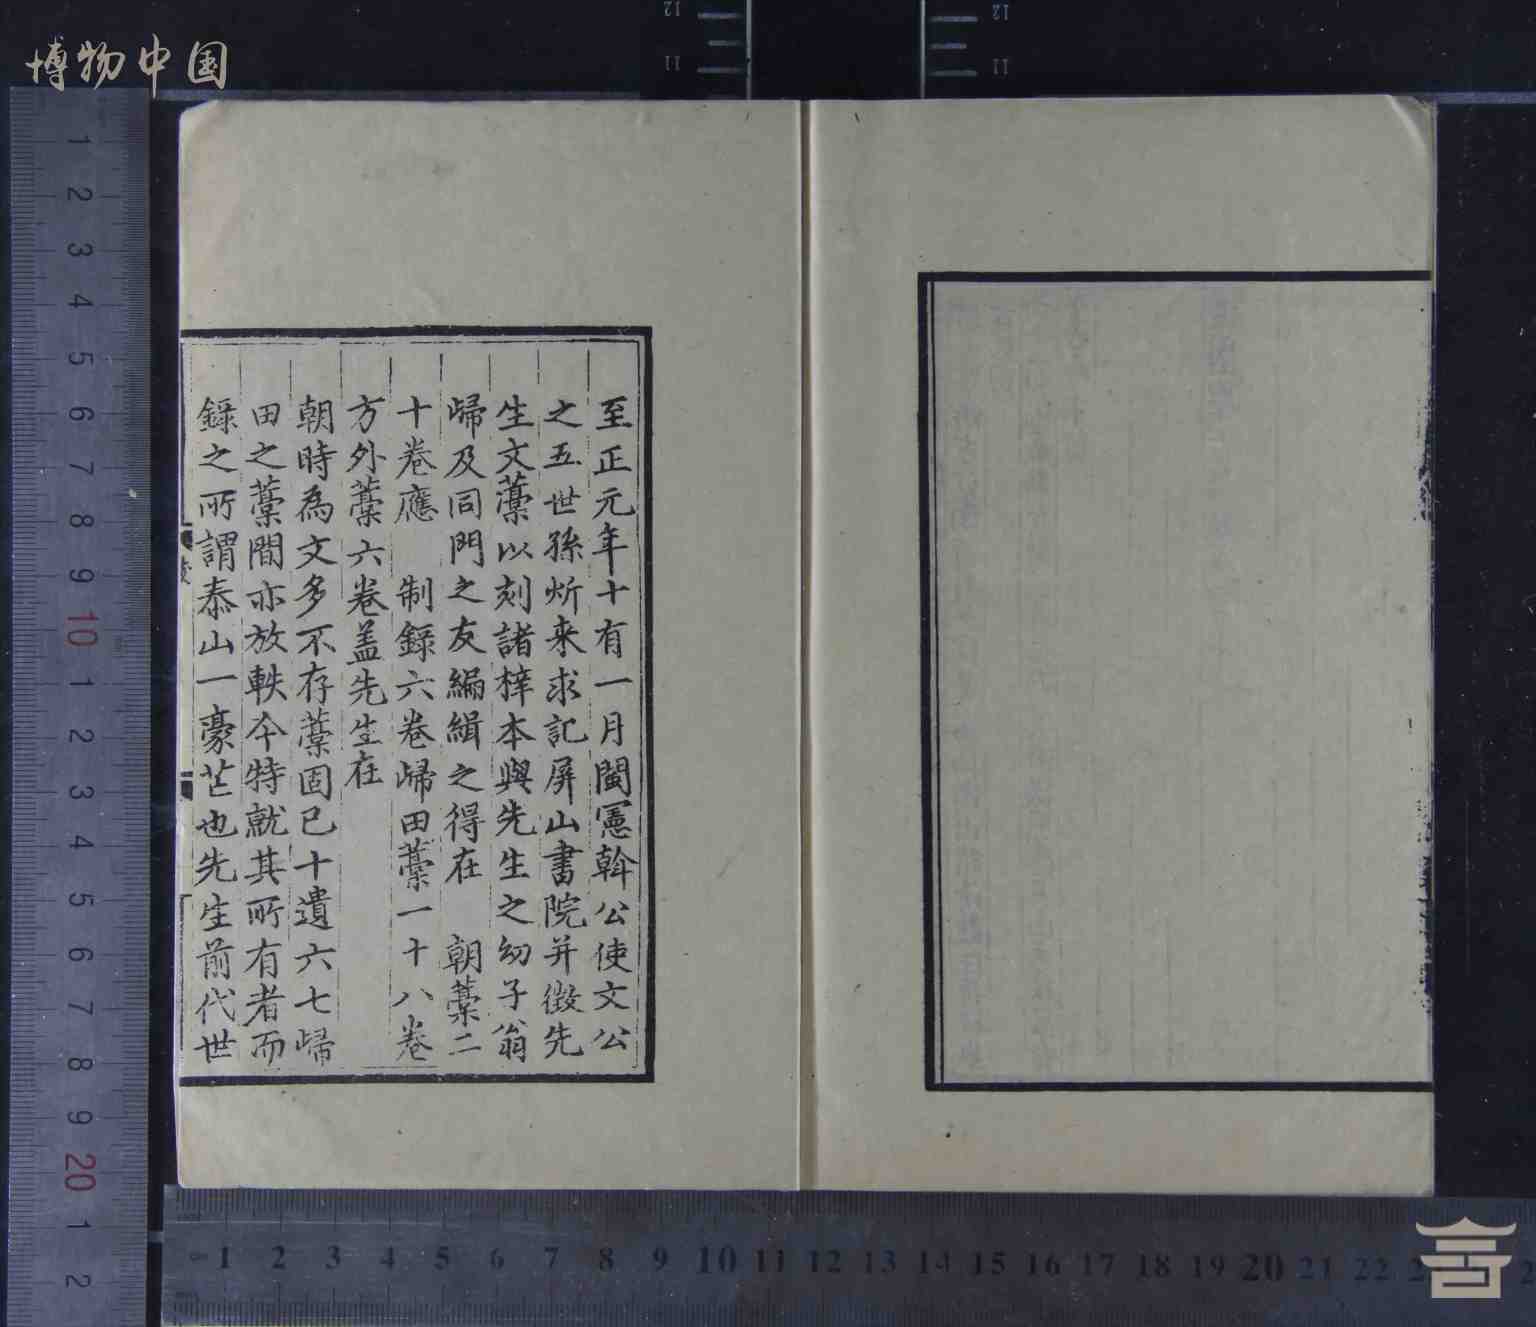 博物中国
至正元年十有一月閩憲斡公使文公
之五世孫炘来求記屏山書院并徵先
生文藁以刻諸梓本與先生之幼子翁
歸及同門之友編緝之得在　朝藁二
十卷應　制錄六卷歸田藁一十八卷
方外藁六卷盖先生在
朝時為文多不存藁固已十遺六七歸
田之藁間亦放軼今特就其所有者而
錄之所謂泰山一豪芒也先生前代世